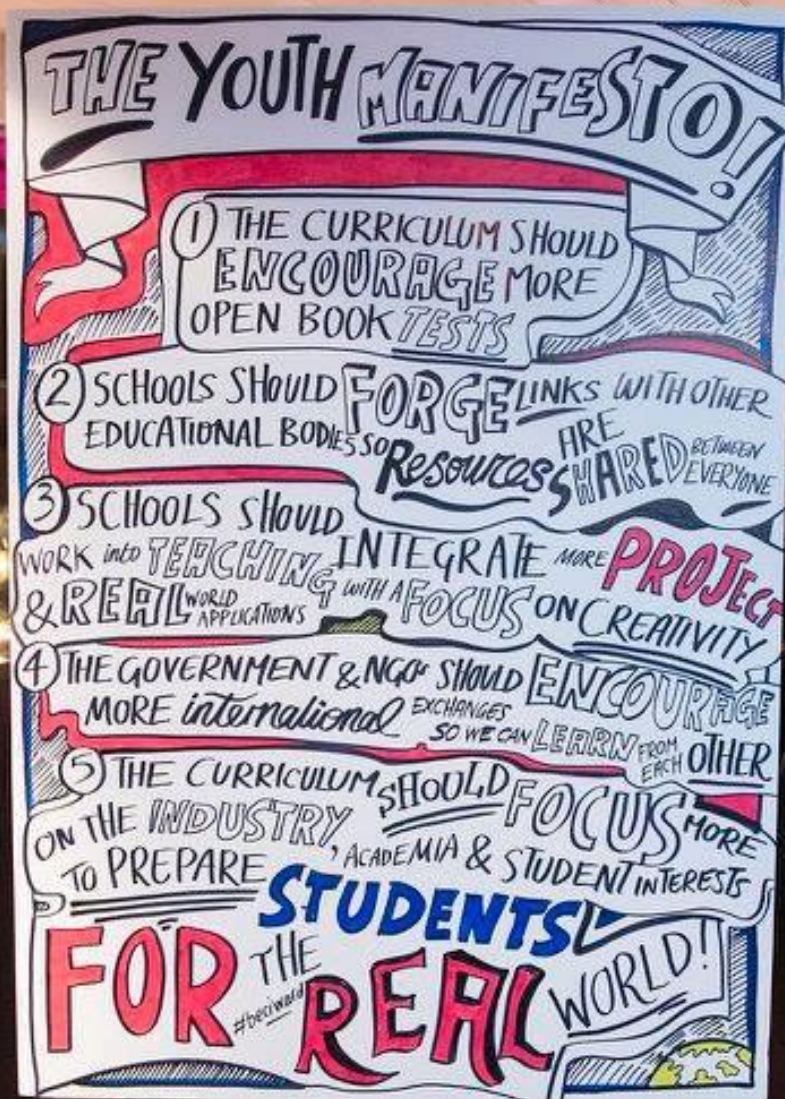 THE YOUTH MANIFESTO!
① THE CURRICULUM SHOULD
ENCOURAGE MORE
OPEN BOOK TESTS
② SCHOOLS SHOULD FORGE LINKS WITH OTHER
EDUCATIONAL BODIES SO Resources ARE SHARED BETWEEN EVERYONE
③ SCHOOLS SHOULD INTEGRATE MORE PROJECT
WORK into TEACHING WITH A FOCUS ON CREATIVITY
& REAL WORLD APPLICATIONS
④ THE GOVERNMENT & NGOs SHOULD ENCOURAGE
MORE international EXCHANGES SO WE CAN LEARN FROM EACH OTHER
⑤ THE CURRICULUM SHOULD FOCUS MORE
ON THE INDUSTRY, ACADEMIA & STUDENT INTERESTS
TO PREPARE STUDENTS
FOR THE REAL WORLD!